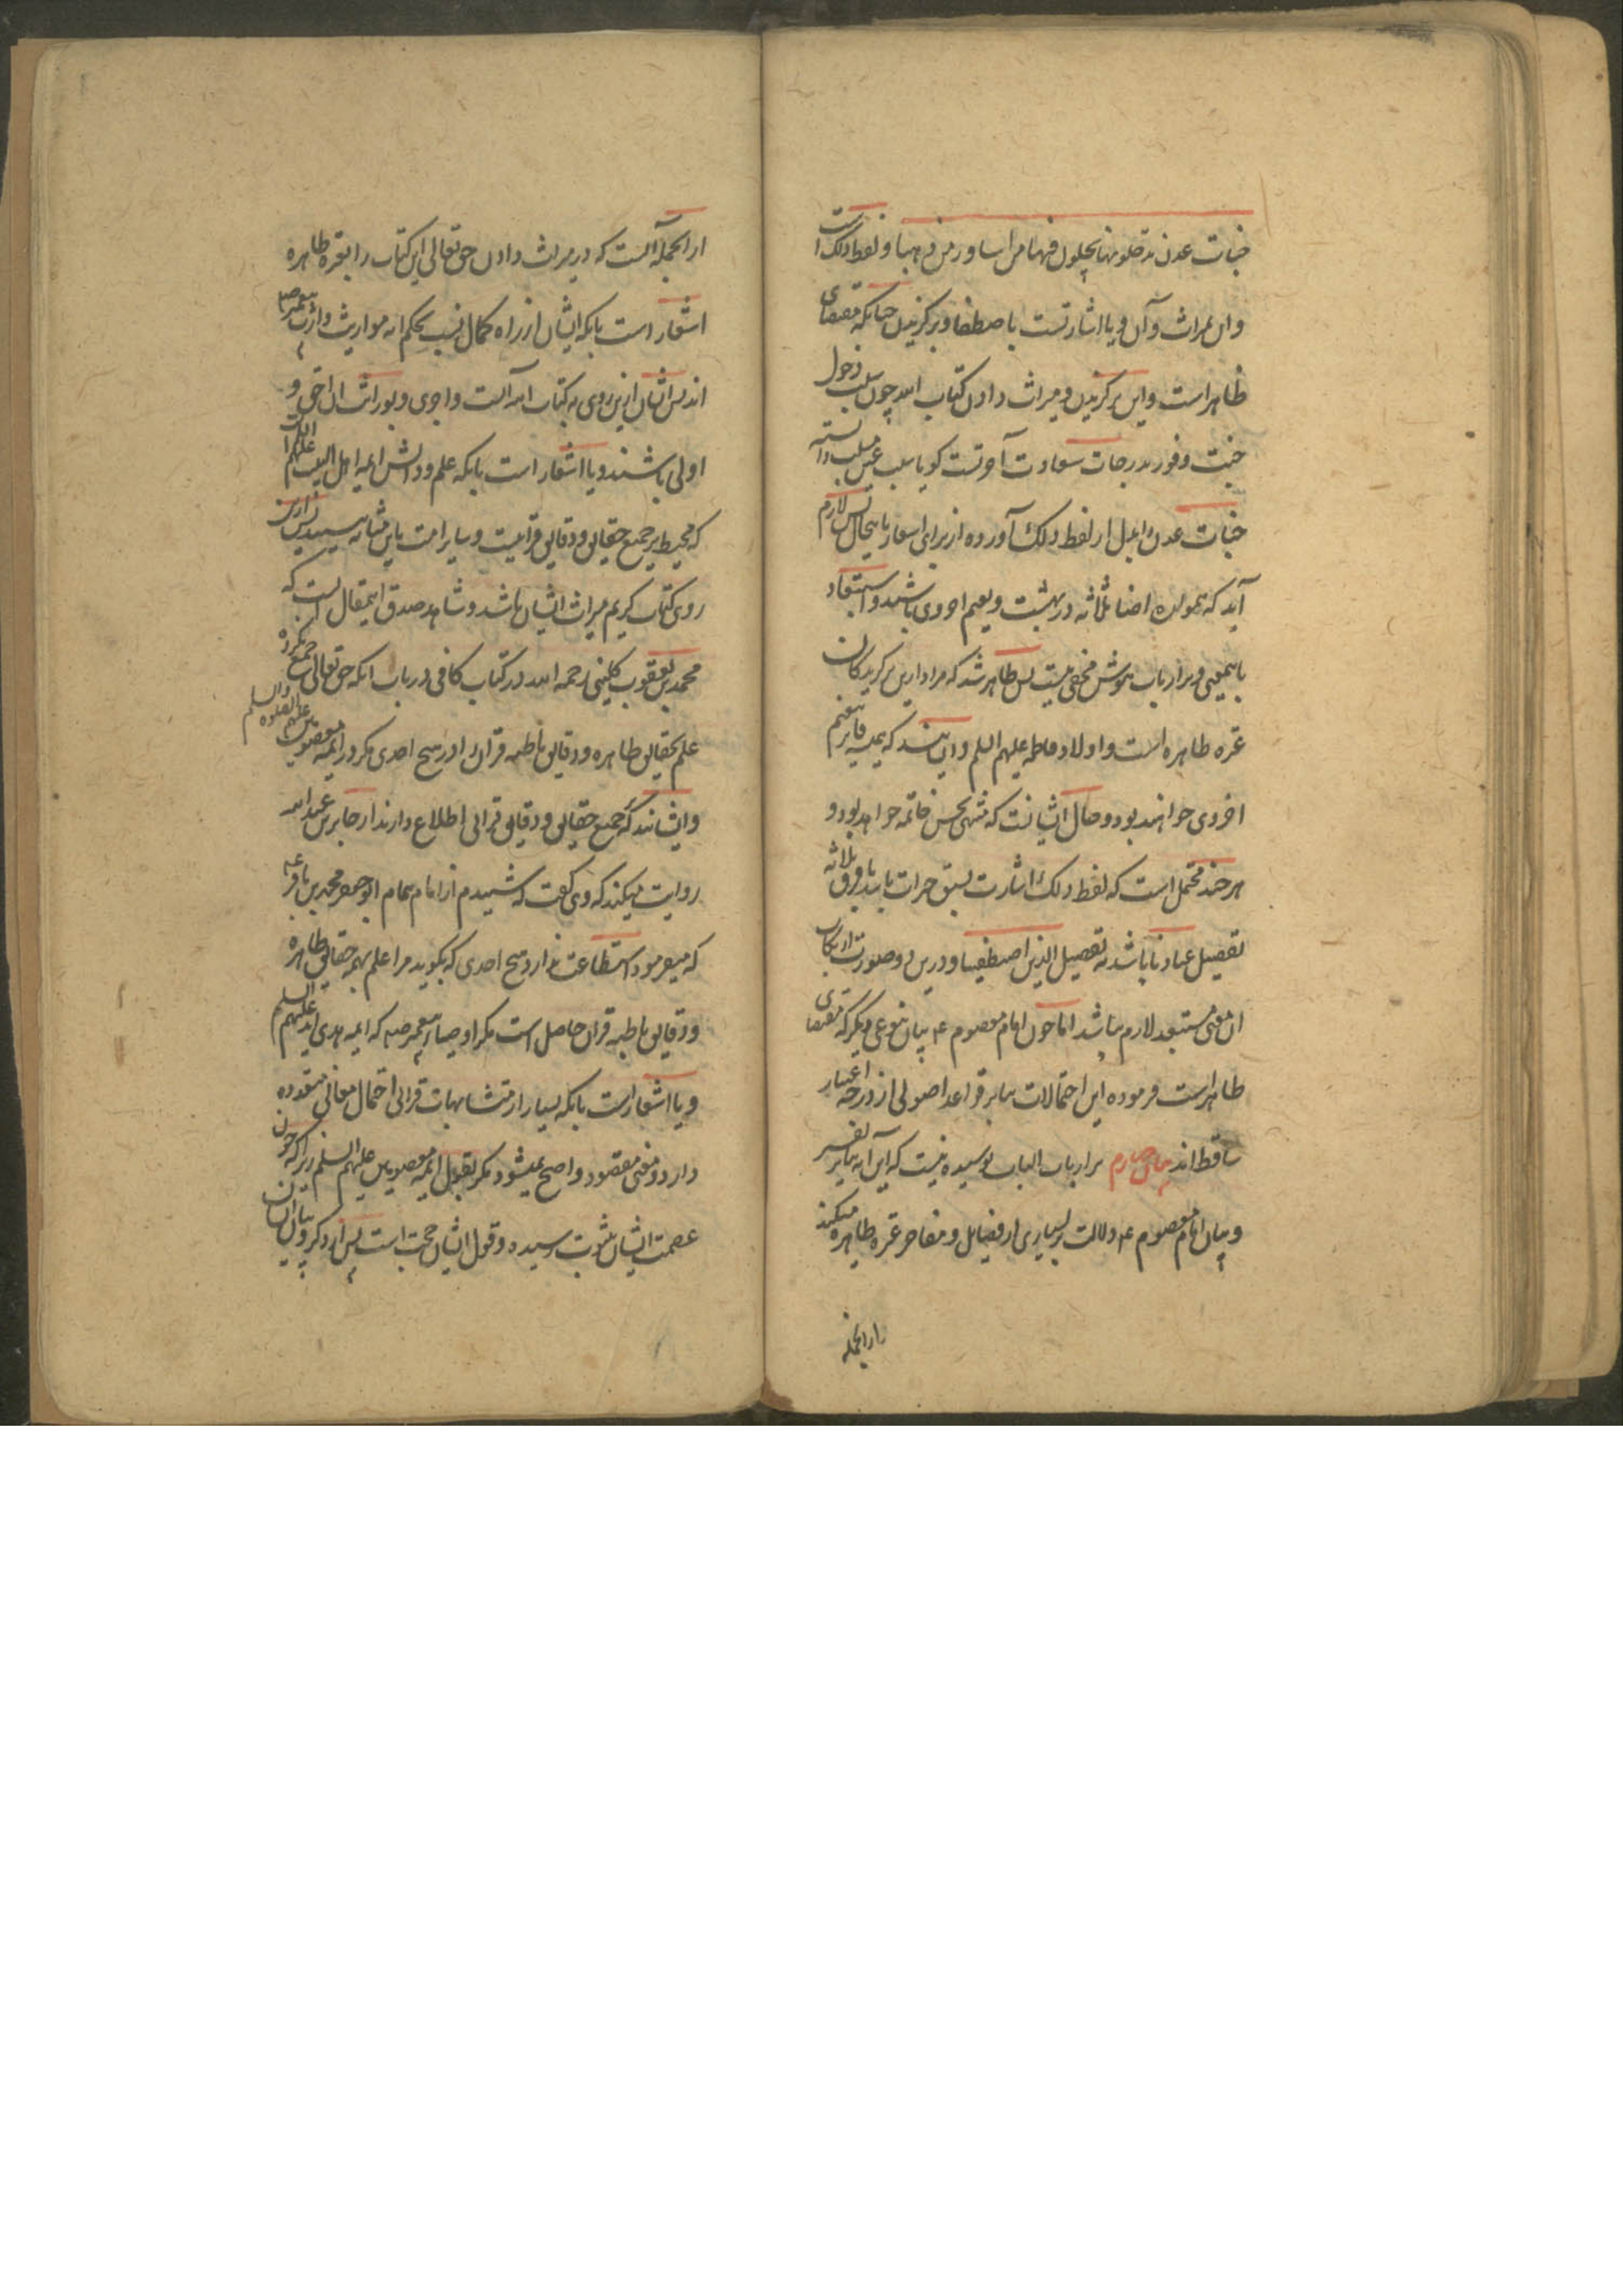 جنات عدن یدخلونها یحلون فیها من اساور من ذهبا و لفظ ذلک اشارتست
وان بمیراث و آن ویا اشارتست باصطفا و برگزیدن چنانکه مقتضای
ظاهر است و این برگزیدن و میراث دادن کتاب الله چون سبب دخول
جنت و فوز بدرجات سعادت آخرتست کویا سبب عین مسبب دانسته
جنات عدن ابدل از لفظ ذلک آورده از برای اشعار باینحال پس لازم
آید که همولان اصناف ثلاثه در بهشت و نعیم اخروی باشند و استبعاد
باینمعنی بر ارباب هوش مخفی نیست پس ظاهر شد که مراد ازین برگزیدکان
عترة طاهره است و اولاد فاطمه علیهم السلم و ایشانند که همیشه فایز بنعیم
اخروی خواهند بود و حال ایشانست که منتهی بحسن خاتمه خواهد بود و
هر چند محتمل است که لفظ ذلک اشارت بسبق خیرات باشد یا فرق ثلاثه
تفصیل عبادنا باشد نه تفصیل الذین اصطفینا و درین دو صورت ارتکاب
ان معنی مستبعد لازم نباشد اما چون امام معصوم ع بیان بنوعی دیگر که مقتضای
ظاهر است فرموده این احتمالات بنابر قواعد اصولی از درجه اعتبار
ساقط اند بیان چهارم بر ارباب الباب پوشیده نیست که این آیه بنابر تفسیر
و بیان امام معصوم ع دلالت بر بسیاری از فضایل و مفاخر عترة طاهره میکند
از انجمله
از انجمله آنست که در میراث دادن حق تعالی این کتاب را بعترة طاهره
اشعار است بانکه ایشان از راه کمال نسب بحکم آیه مواریث وارث پیغمبر ص
اند پس ایشان ازین روی به کتاب الله آلست و احری و بوراثت آن احق و
اولی باشند و یا اشعار است بانکه علم و دانش ایمه اهل البیت علیهم السلم
که محیط بر جمیع حقایق و دقایق قرآنیست و سایر امت باین مثابه نرسیدند پس ازین
روی کتاب کریم میراث ایشان باشد و شاهد صدق اینمقال آنست که
محمد بن یعقوب کلینی رحمه الله در کتاب کافی در باب انکه حق تعالی جمع نکرده
علم بحقایق ظاهره و دقایق باطنه قران را در هیچ احدی مکر در ایمه معصومین علیهم الصلوه والسلم
و ایشانند که بجمیع حقایق و دقایق قرانی اطلاع دارند از جابر بن عبدالله
روایت میکند که وی کفت که شنیدم از امام همام ابو جعفر محمد بن باقر ع
که میفرمود استطاعت ندارد هیچ احدی که بکوید مرا علم بهمه حقایق ظاهره
و دقایق باطنه قران حاصل است مکر اوصیاء پیغمبر ص که ایمه هدی اند علیهم السلم
و یا اشعار است بانکه بسیار از متشابهات قرانی احتمال معانی متعدده
دارد و معنی مقصود واضح نمیشود مکر بقول ایمه معصومین علیهم السلم زیرا که چون
عصمت ایشان بثبوت رسیده و قول ایشان حجت است پس از ذکر و بیان ایشان